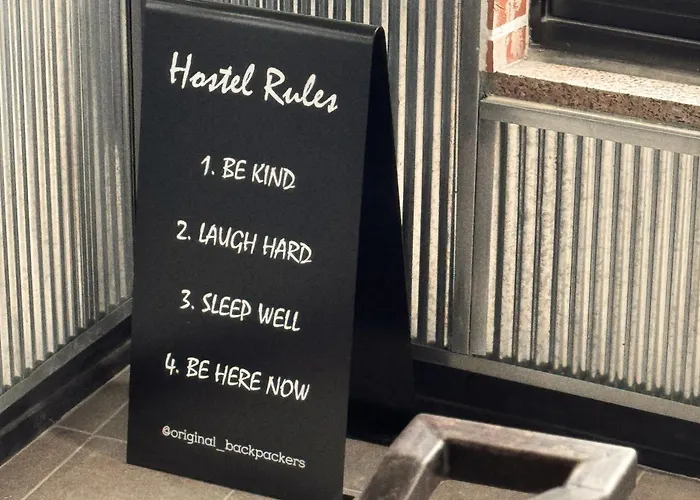 Hostel Rules
1. BE KIND
2. LAUGH HARD
3. SLEEP WELL
4. BE HERE NOW
@original_backpackers